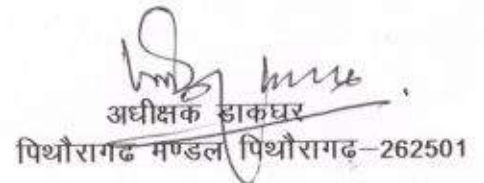 अधीक्षक डाकघर
पिथौरागढ मण्डल पिथौरागढ़–262501